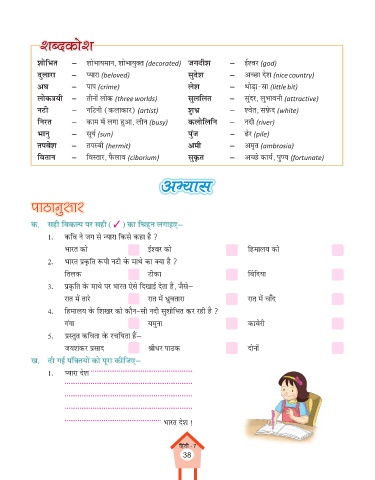 शब्दकोश
शोभित – शोभायमान, शोभायुक्त (decorated) जगदीश – ईश्वर (god)
दुलारा – प्यारा (beloved) सुदेश – अच्छा देश (nice country)
अघ – पाप (crime) लेश – थोड़ा-सा (little bit)
लोकत्रयी – तीनों लोक (three worlds) सुललित – सुंदर, लुभावनी (attractive)
नटी – नटिनी (कलाकार) (artist) शुभ्र – श्वेत, सफ़ेद (white)
निरत – काम में लगा हुआ, लीन (busy) कलोलिनि – नदी (river)
भानु – सूर्य (sun) पुंज – ढेर (pile)
तपवेश – तपस्वी (hermit) अमी – अमृत (ambrosia)
वितान – विस्तार, फैलाव (ciborium) सुकृत – अच्छे कार्य, पुण्य (fortunate)
अभ्यास
पाठानुसार
क. सही विकल्प पर सही (✓) का चिह्न लगाइए–
1. कवि ने जग से न्यारा किसे कहा है ?
भारत को ईश्वर को हिमालय को
2. भारत प्रकृति रूपी नटी के माथे का क्या है ?
तिलक टीका बिंदिया
3. प्रकृति के माथे पर भारत ऐसे दिखाई देता है, जैसे–
रात में तारे रात में ध्रुवतारा रात में चाँद
4. हिमालय के शिखर को कौन-सी नदी सुशोभित कर रही है ?
गंगा यमुना कावेरी
5. प्रस्तुत कविता के रचयिता हैं–
जयशंकर प्रसाद श्रीधर पाठक दोनों
ख. दी गई पंक्तियों को पूरा कीजिए–
1. प्यारा देश
भारत देश !
हिंदी - 7
38